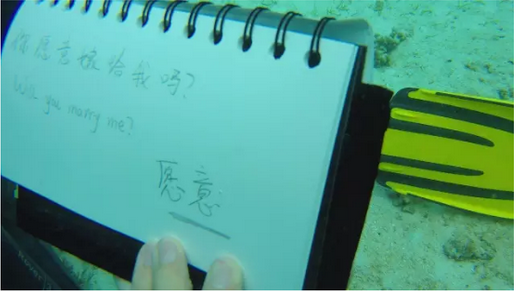 你愿意嫁给我吗?
Will you marry me?
愿意